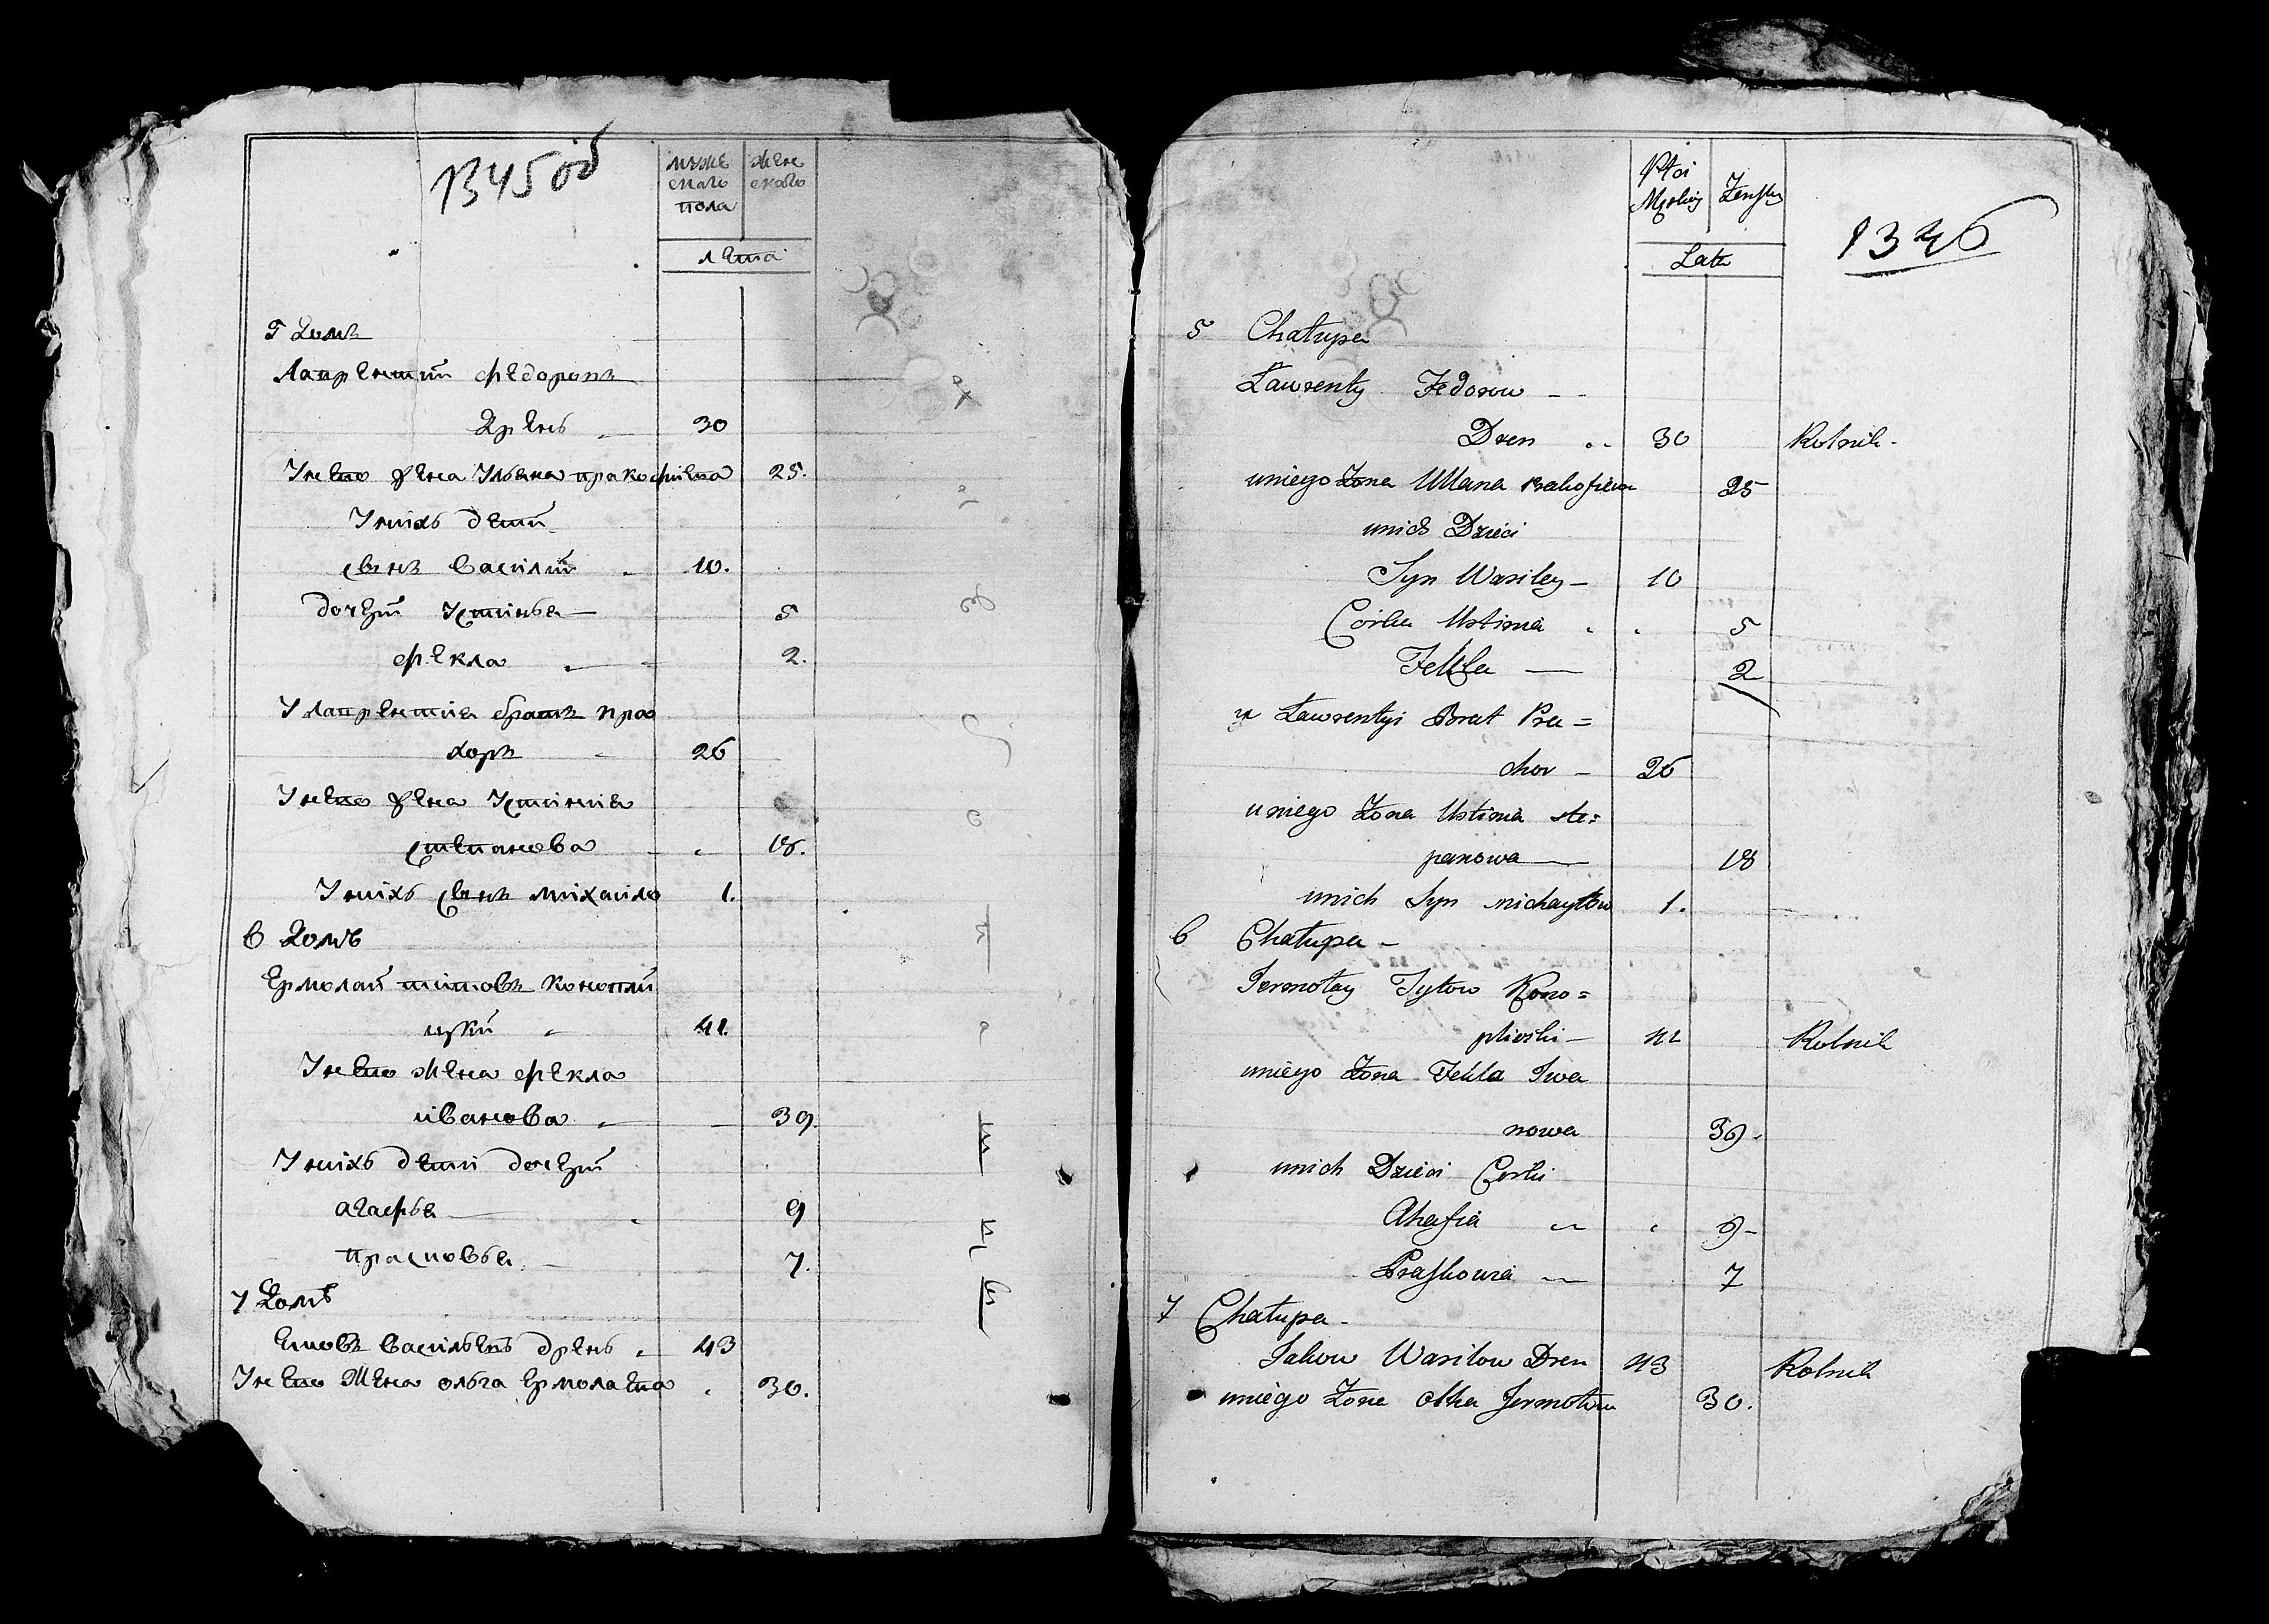 1345 об
мужескаго пола
женскаго
лета
5 Домъ
Лаврентий Федоровъ
Дрень 30
У него жена Ульяна пракофиева 25.
У нихъ дети
сынъ Василий 10.
дочери Устинья 5
фекла 2.
У Лаврентия братъ про
хоръ 26
У него жена Устиния
степанова 18.
У нихъ сынъ михаило 1.
6 Домъ
Ермолай титовъ Конопли
цкий 41.
У него жена фекла
иванова 39.
У нихъ дети дочери
агафья 9
прасковья 7.
7 Домъ
Яковъ Васильевъ дрень 43
У него Жена ольга Ермолаева 30.
Płci Męskiey Żeńskiey
Lata
1346
5 Chałupa
Ławrenty Fedorow
Dren 30 Rolnik
uniego Żona Ullana Prakofiewa 25
unich Dzieci
Syn Wasiley 10
Córka Ustinia 5
Fekla 2
u Ławrentyi Brat Pra=
chor 26
uniego Żona Ustinia ste=
panowa 18
unich Syn michayłow 1.
6 Chałupa
Jermołay Tytow Kono=
plicki 41 Rolnik
uniego Żona Fekla Iwa
nowa 39.
unich Dzieci Corki
Ahafia 9
Praskowia 7
7 Chałupa
Jakow Wasilow Dren 43 Rolnik
uniego Żona Olha Jermołowa 30.